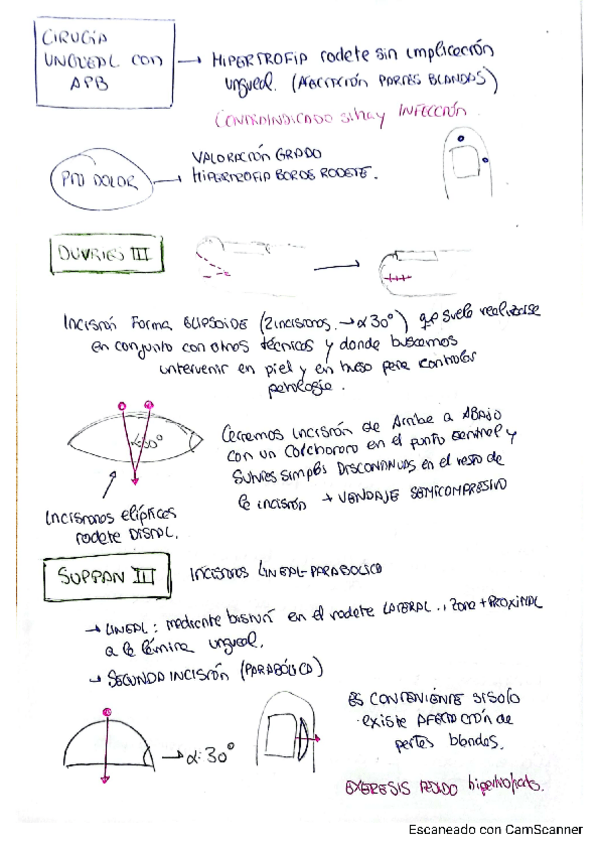 CIRUGÍA
UNGUEAL con
APB
→ HIPERTROFIA rodete sin implicación
ungueal. (AFECTACIÓN PARTES BLANDAS)
CONTRAINDICADO si hay INFECCIÓN.
PTO DOLOR →
VALORACIÓN GRADO
HIPERTROFIA BORDE RODETE.
DUVRIES III
Incisión Forma ELIPSOIDE (2 incisiones → α 30°) que suele realizarse
en conjunto con otras técnicas y donde buscamos
intervenir en piel y en hueso para controlar
patología.
α30°
Cerramos incisión de Arriba a ABAJO
con un Colchonero en el punto central y
suturas simples DISCONTINUAS en el resto de
la incisión + VENDAJE SEMICOMPRESIVO
Incisiones elípticas
rodete DISTAL.
SUPPAN III
INCISIONES LINEAL-PARABOLICO
→ LINEAL: mediante bisturí en el rodete LATERAL, zona + PROXIMAL
a la lámina ungueal.
→ SEGUNDA INCISIÓN (PARABÓLICA)
→ α: 30°
ES CONVENIENTE SI SOLO
existe AFECTACIÓN de
partes blandas.
EXERESIS hipertrofiado.
Escaneado con CamScanner